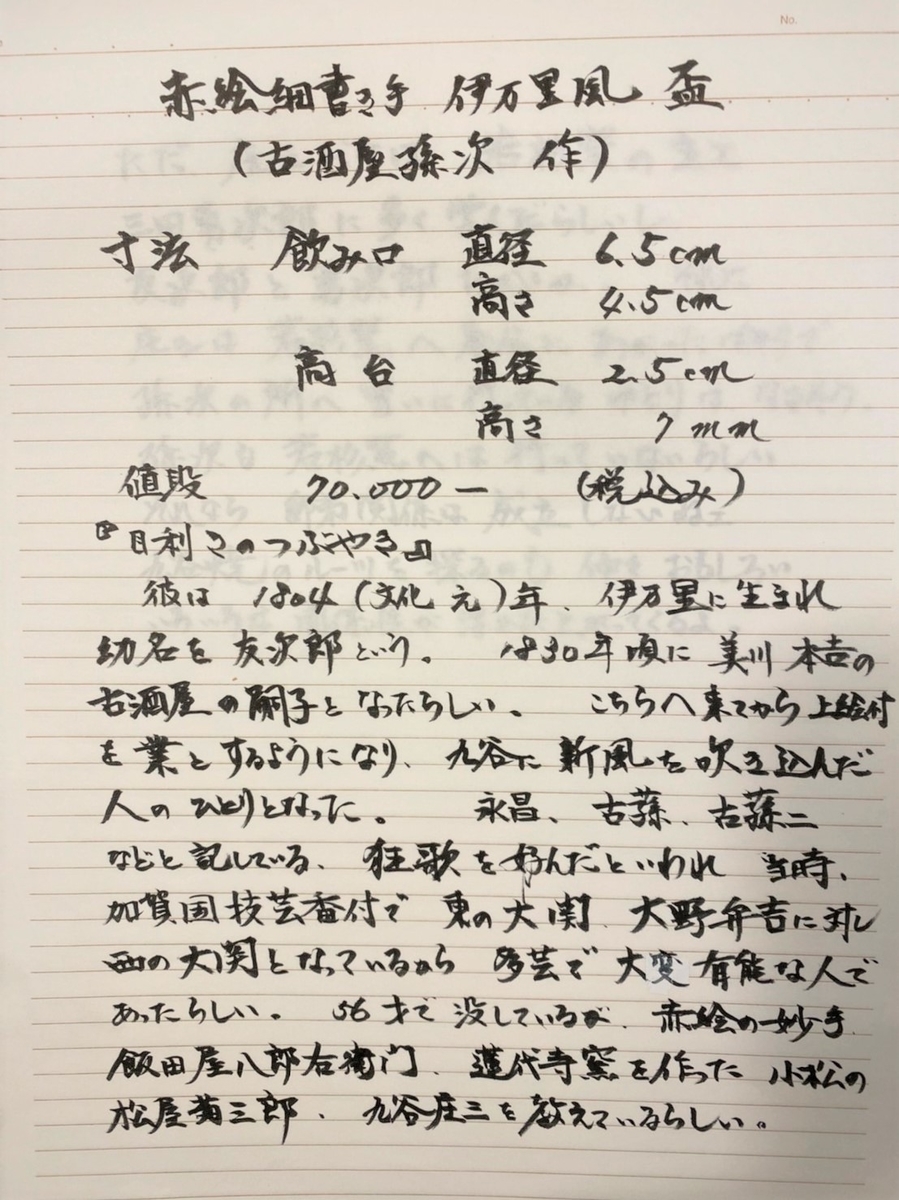 No.
赤絵細書き手 伊万里風 盃
(古酒屋孫次 作)
寸法 飲み口 直径 6.5cm
高さ 4.5cm
高台 直径 2.5cm
高さ 7mm
値段 70.000— (税込み)
『目利きのつぶやき』
彼は 1804(文化 元)年、伊万里に生まれ
幼名を 友次郎という。 1830年頃に 美川 本吉の
古酒屋の嗣子となったらしい。 こちらへ来てから 上絵付
を業とするようになり、九谷に 新風を吹き込んだ
人の ひとりとなった。 永昌、古孫、古孫二
などと記している、狂歌を好んだといわれ 当時、
加賀国技芸番付で 東の大関 大野弁吉に対し
西の大関となっているから 多芸で 大変 有能な人で
あったらしい。 56才で没しているが、赤絵の妙手
飯田屋八郎右衛門、蓮代寺窯を作った 小松の
松屋菊三郎、九谷庄三を教えているらしい。